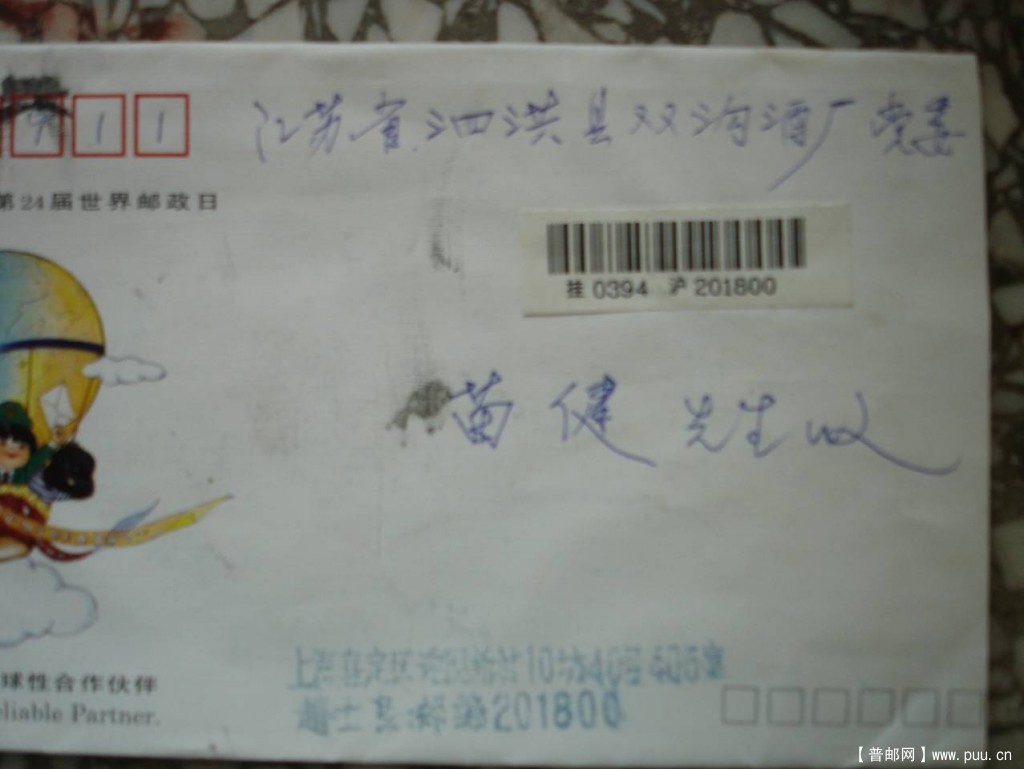 911
江苏省泗洪县双沟酒厂党委
第24届世界邮政日
挂 0394 沪 201800
苗健 先生收
球性合作伙伴
eliable Partner.
上海嘉定区 10坊40号406室
邮编201800
【普邮网】www.puu.cn